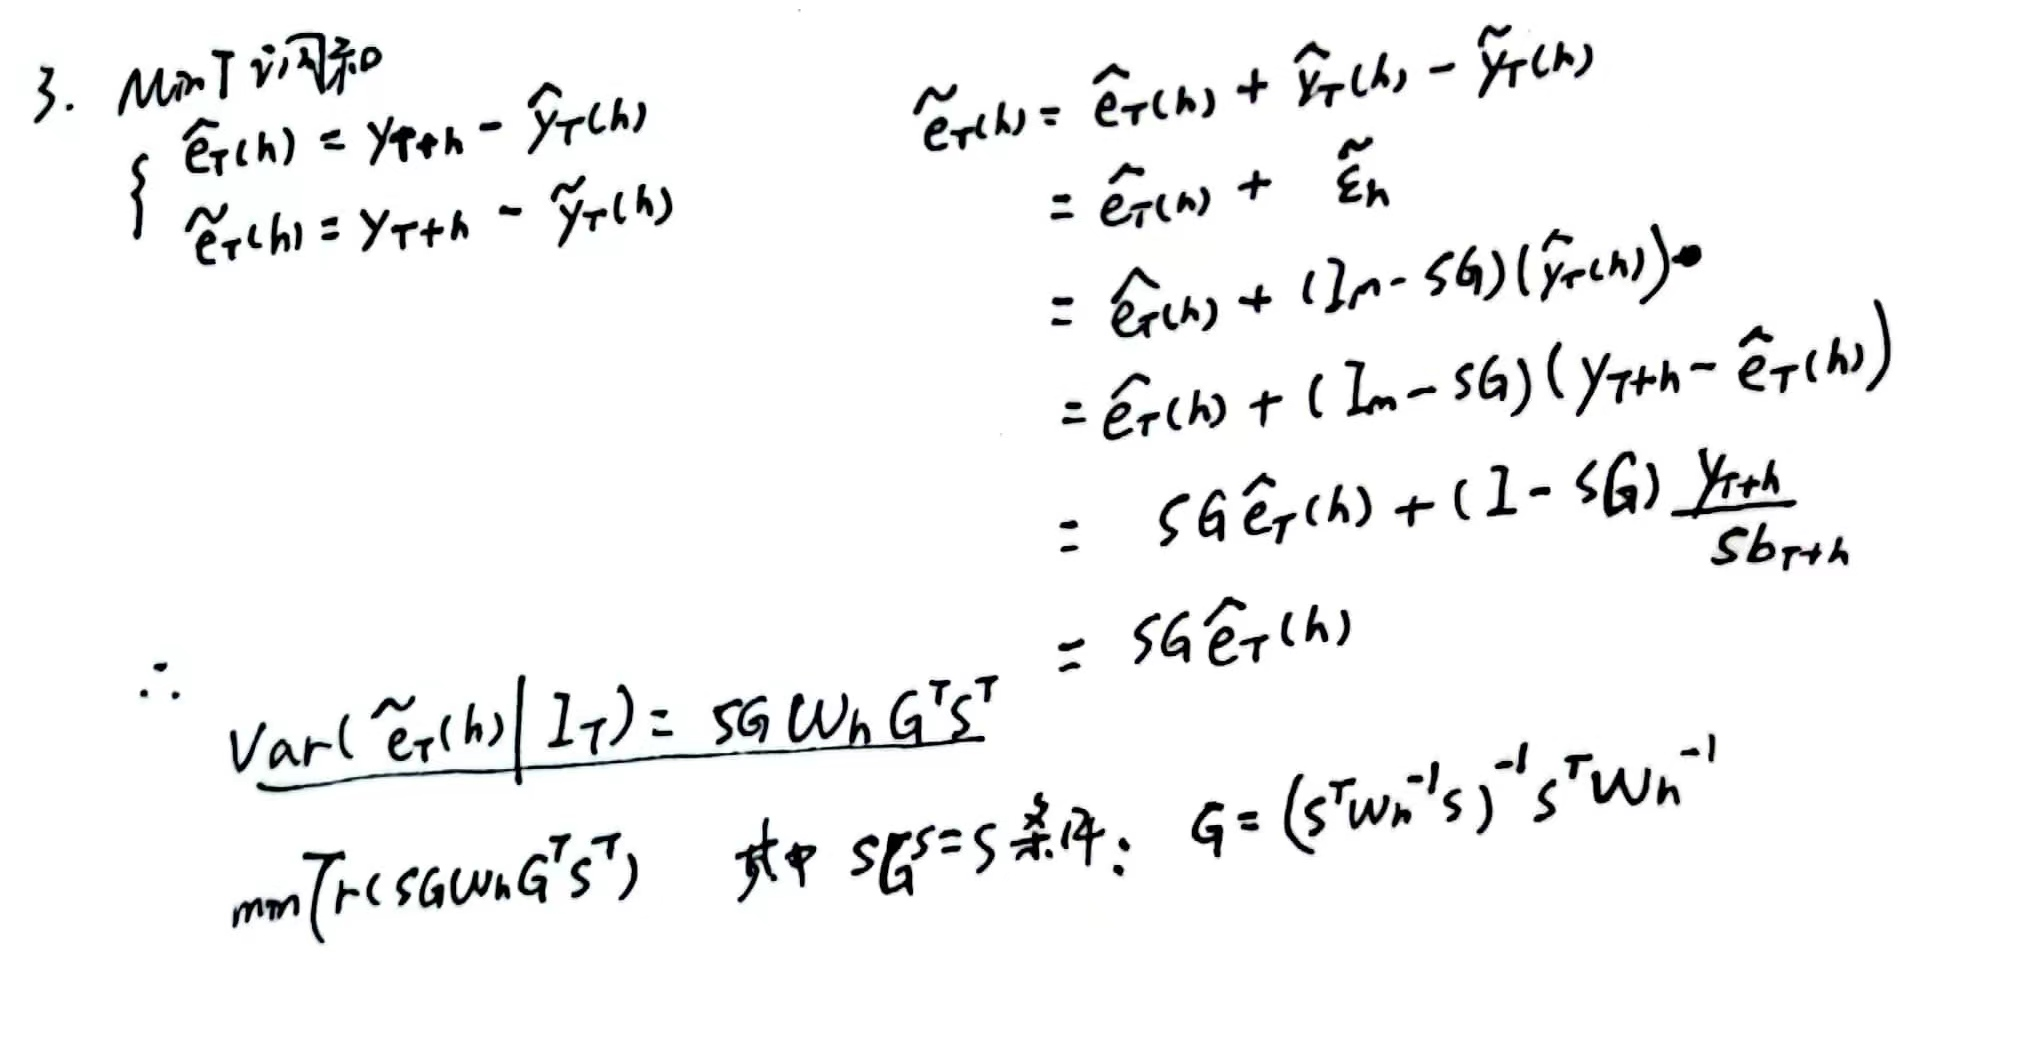 3. MinT 调和
{ ê_T(h) = y_{T+h} - ŷ_T(h)
ẽ_T(h) = y_{T+h} - ỹ_T(h)
ẽ_T(h) = ê_T(h) + ŷ_T(h) - ỹ_T(h)
= ê_T(h) + ε̃_h
= ê_T(h) + (I_m - SG)(ŷ_T(h))
= ê_T(h) + (I_m - SG)(y_{T+h} - ê_T(h))
= SG ê_T(h) + (I - SG) y_{T+h}
Sb_{T+h}
= SG ê_T(h)
∴ Var(ẽ_T(h) | I_T) = SG W_h G^T S^T
min Tr(SG W_h G^T S^T) 其中 SGS = S 条件: G = (S^T W_h^{-1} S)^{-1} S^T W_h^{-1}